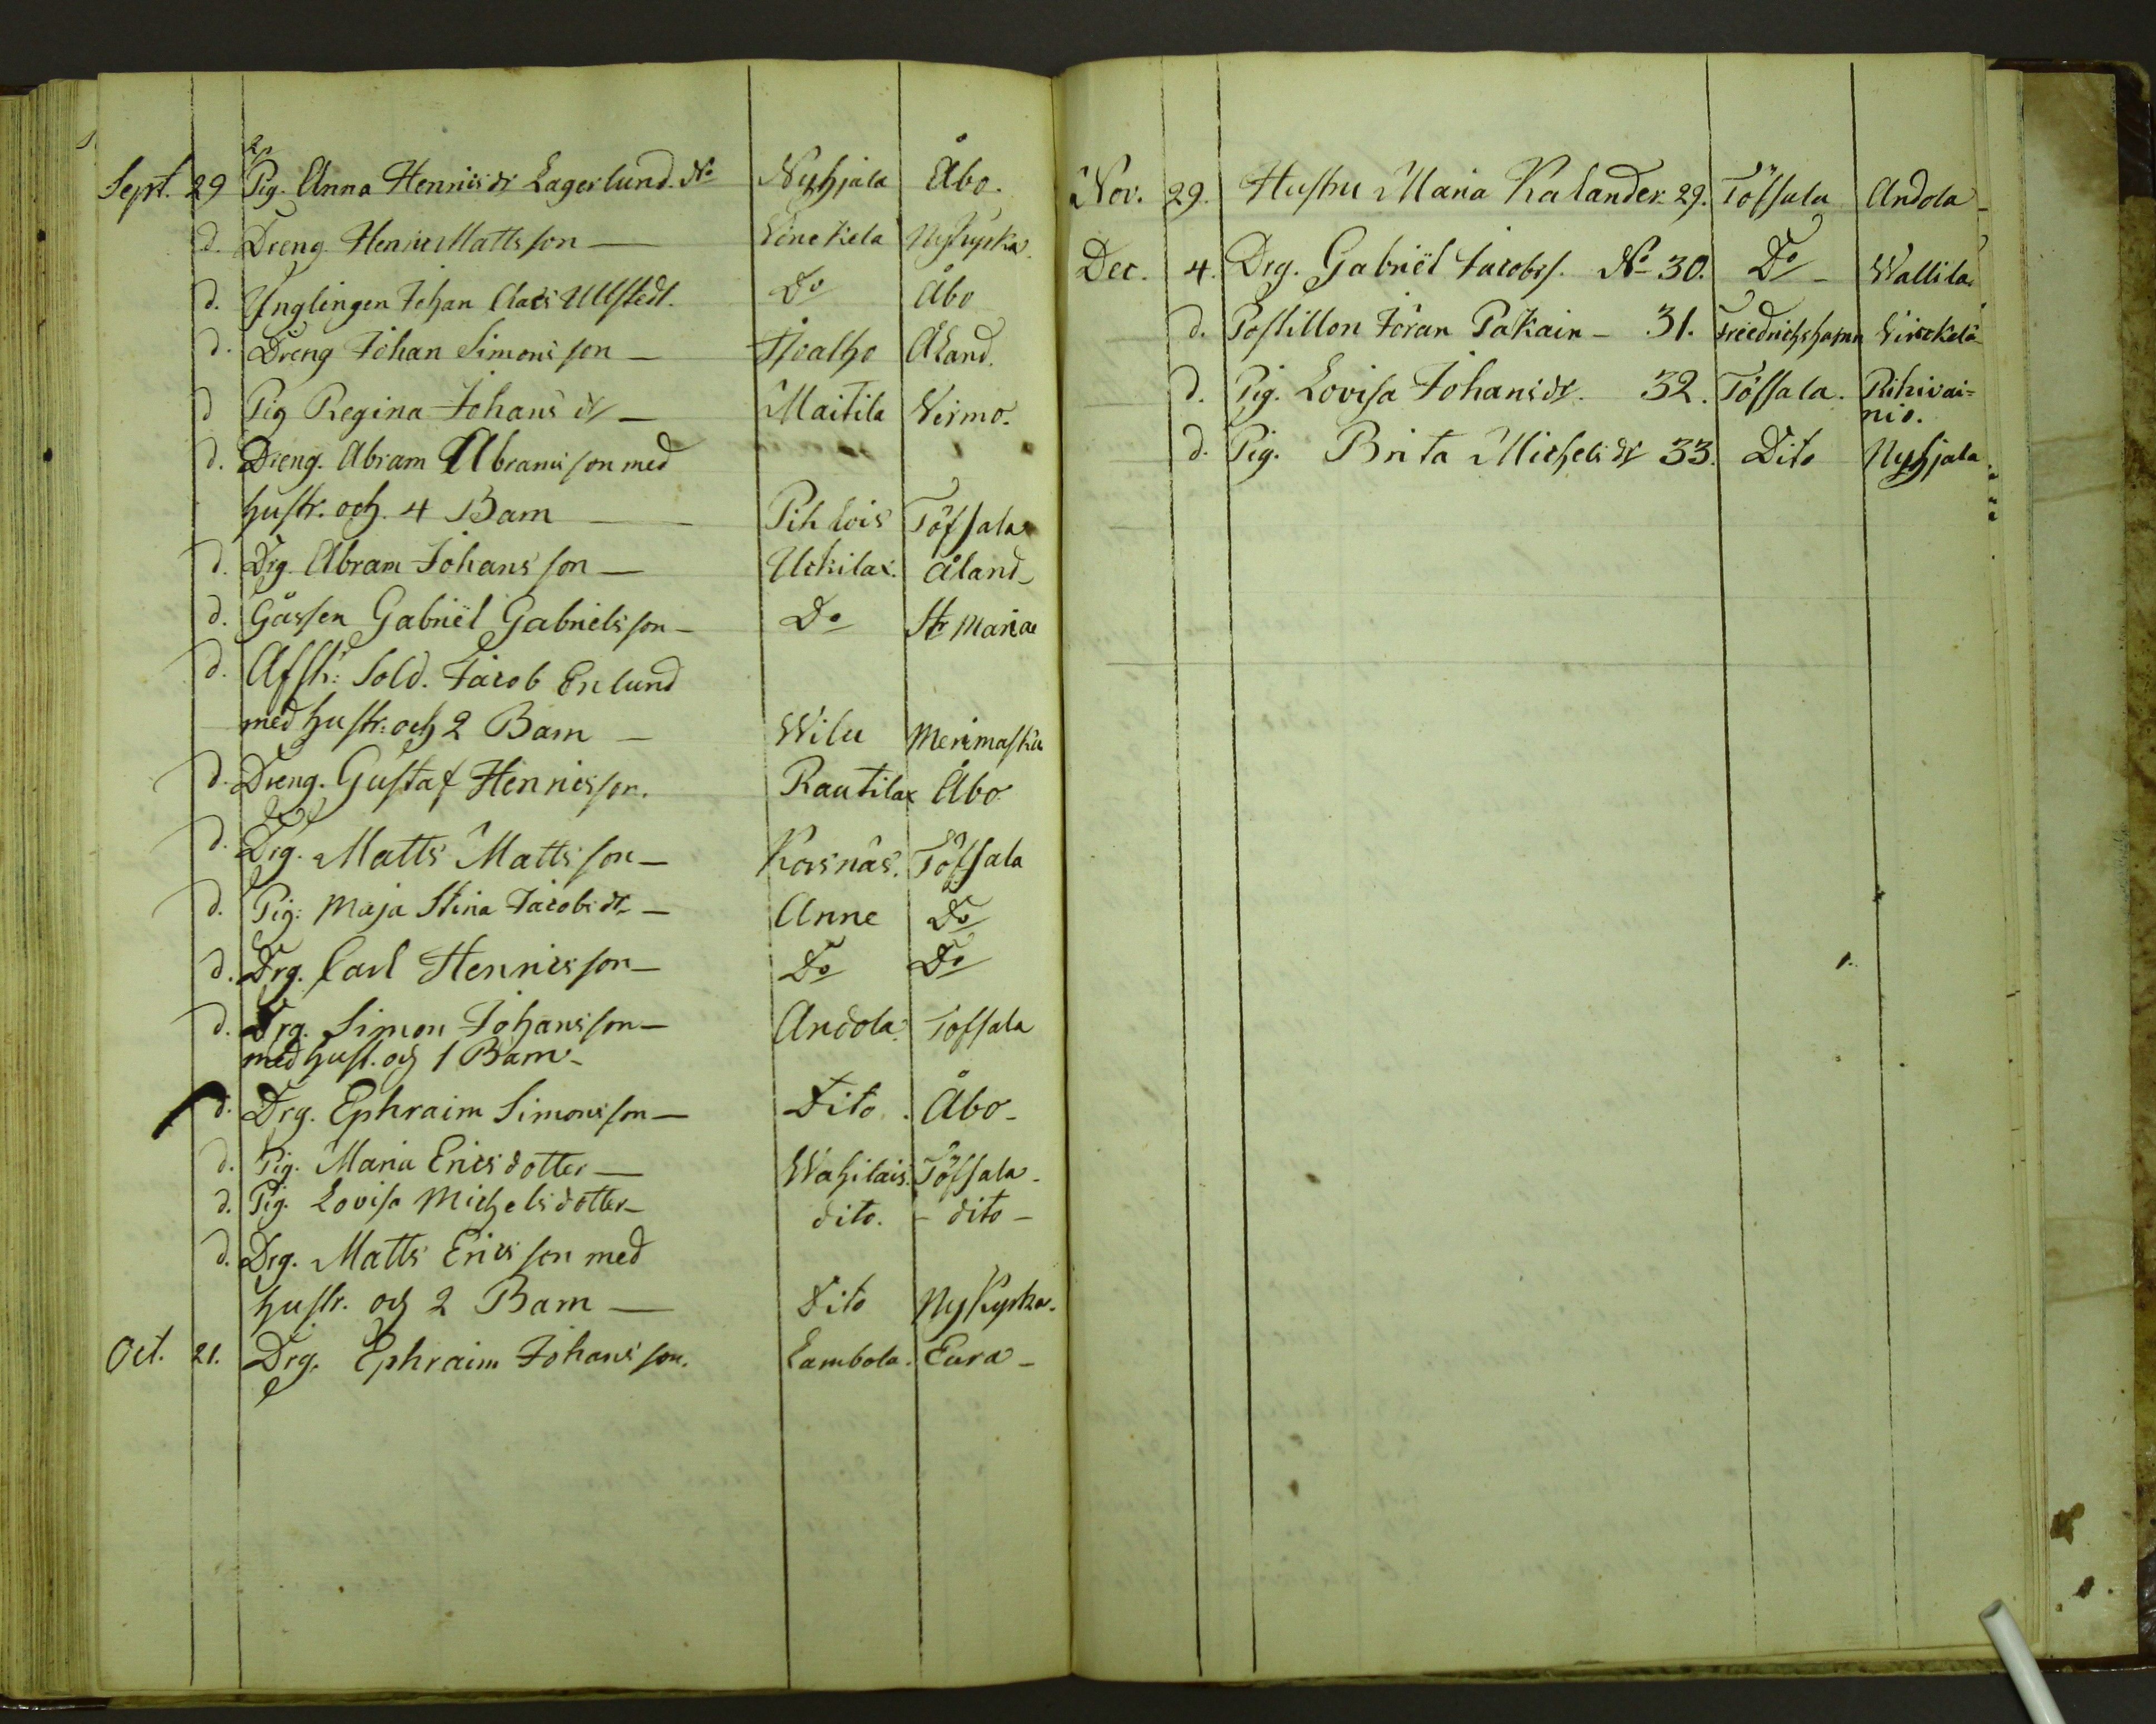 Sept. 29 Pig. Anna Henricsdr Lagerlund. No Nyhjala Åbo.
d. Dreng Henric Mattsson — Nykyrka.
d. Ynglingen Johan Claes Ullstedt. Do Åbo
d. Dreng Johan Simonsson — Åland.
d Pig Regina Johansdr — Maitila Virmo.
d. Dreng. Abram Abramsson med
hustr. och 4 Barn — Pihlois Töfsala
d. Drg. Abram Johansson — Uckilax. Åland –
d. Gåssen Gabriël Gabrielsson – Do St Mariae
d. Afsk: Sold. Jacob Enlund
med hustr: och 2 Barn — Wilu Merimasku
d. Dreng. Gustaf Henricsson. Rautilax Åbo
d. Drg. Matts Mattsson — Korsnäs. Töfsala
d. Pig: Maja Stina Jacobsdr — Anne Do
d. Drg. Carl Henricsson — Do Do
d. Drg. Simon Johansson — Andola. Tofsala
med hust. och 1 Barn –
d. Drg. Ephraim Simonsson — Dito. Åbo –
d. Pig. Maria Ericsdotter — Wahilais. Töfsala –
d. Pig. Lovisa Michelsdotter — dito. – dito –
d. Drg. Matts Ericsson med
hustr. och 2 Barn — Dito Nykyrka.
Oct. 21. Drg. Ephraim Johansson. Lambola. Eura –
Nov. 29. Hustru Maria Kalander 29. Töfsala Andola –
Dec. 4. Drg. Gabriël Jacobss. No 30. Do – Wallila
d. Postillon Jöran Pakain – 31. Friedrichshamn Vinckelä
d. Pig. Lovisa Johansdr. 32. Töfsala. Pihivai=
nio.
d. Pig. Brita Michelsdr 33. Dito Nyhjala